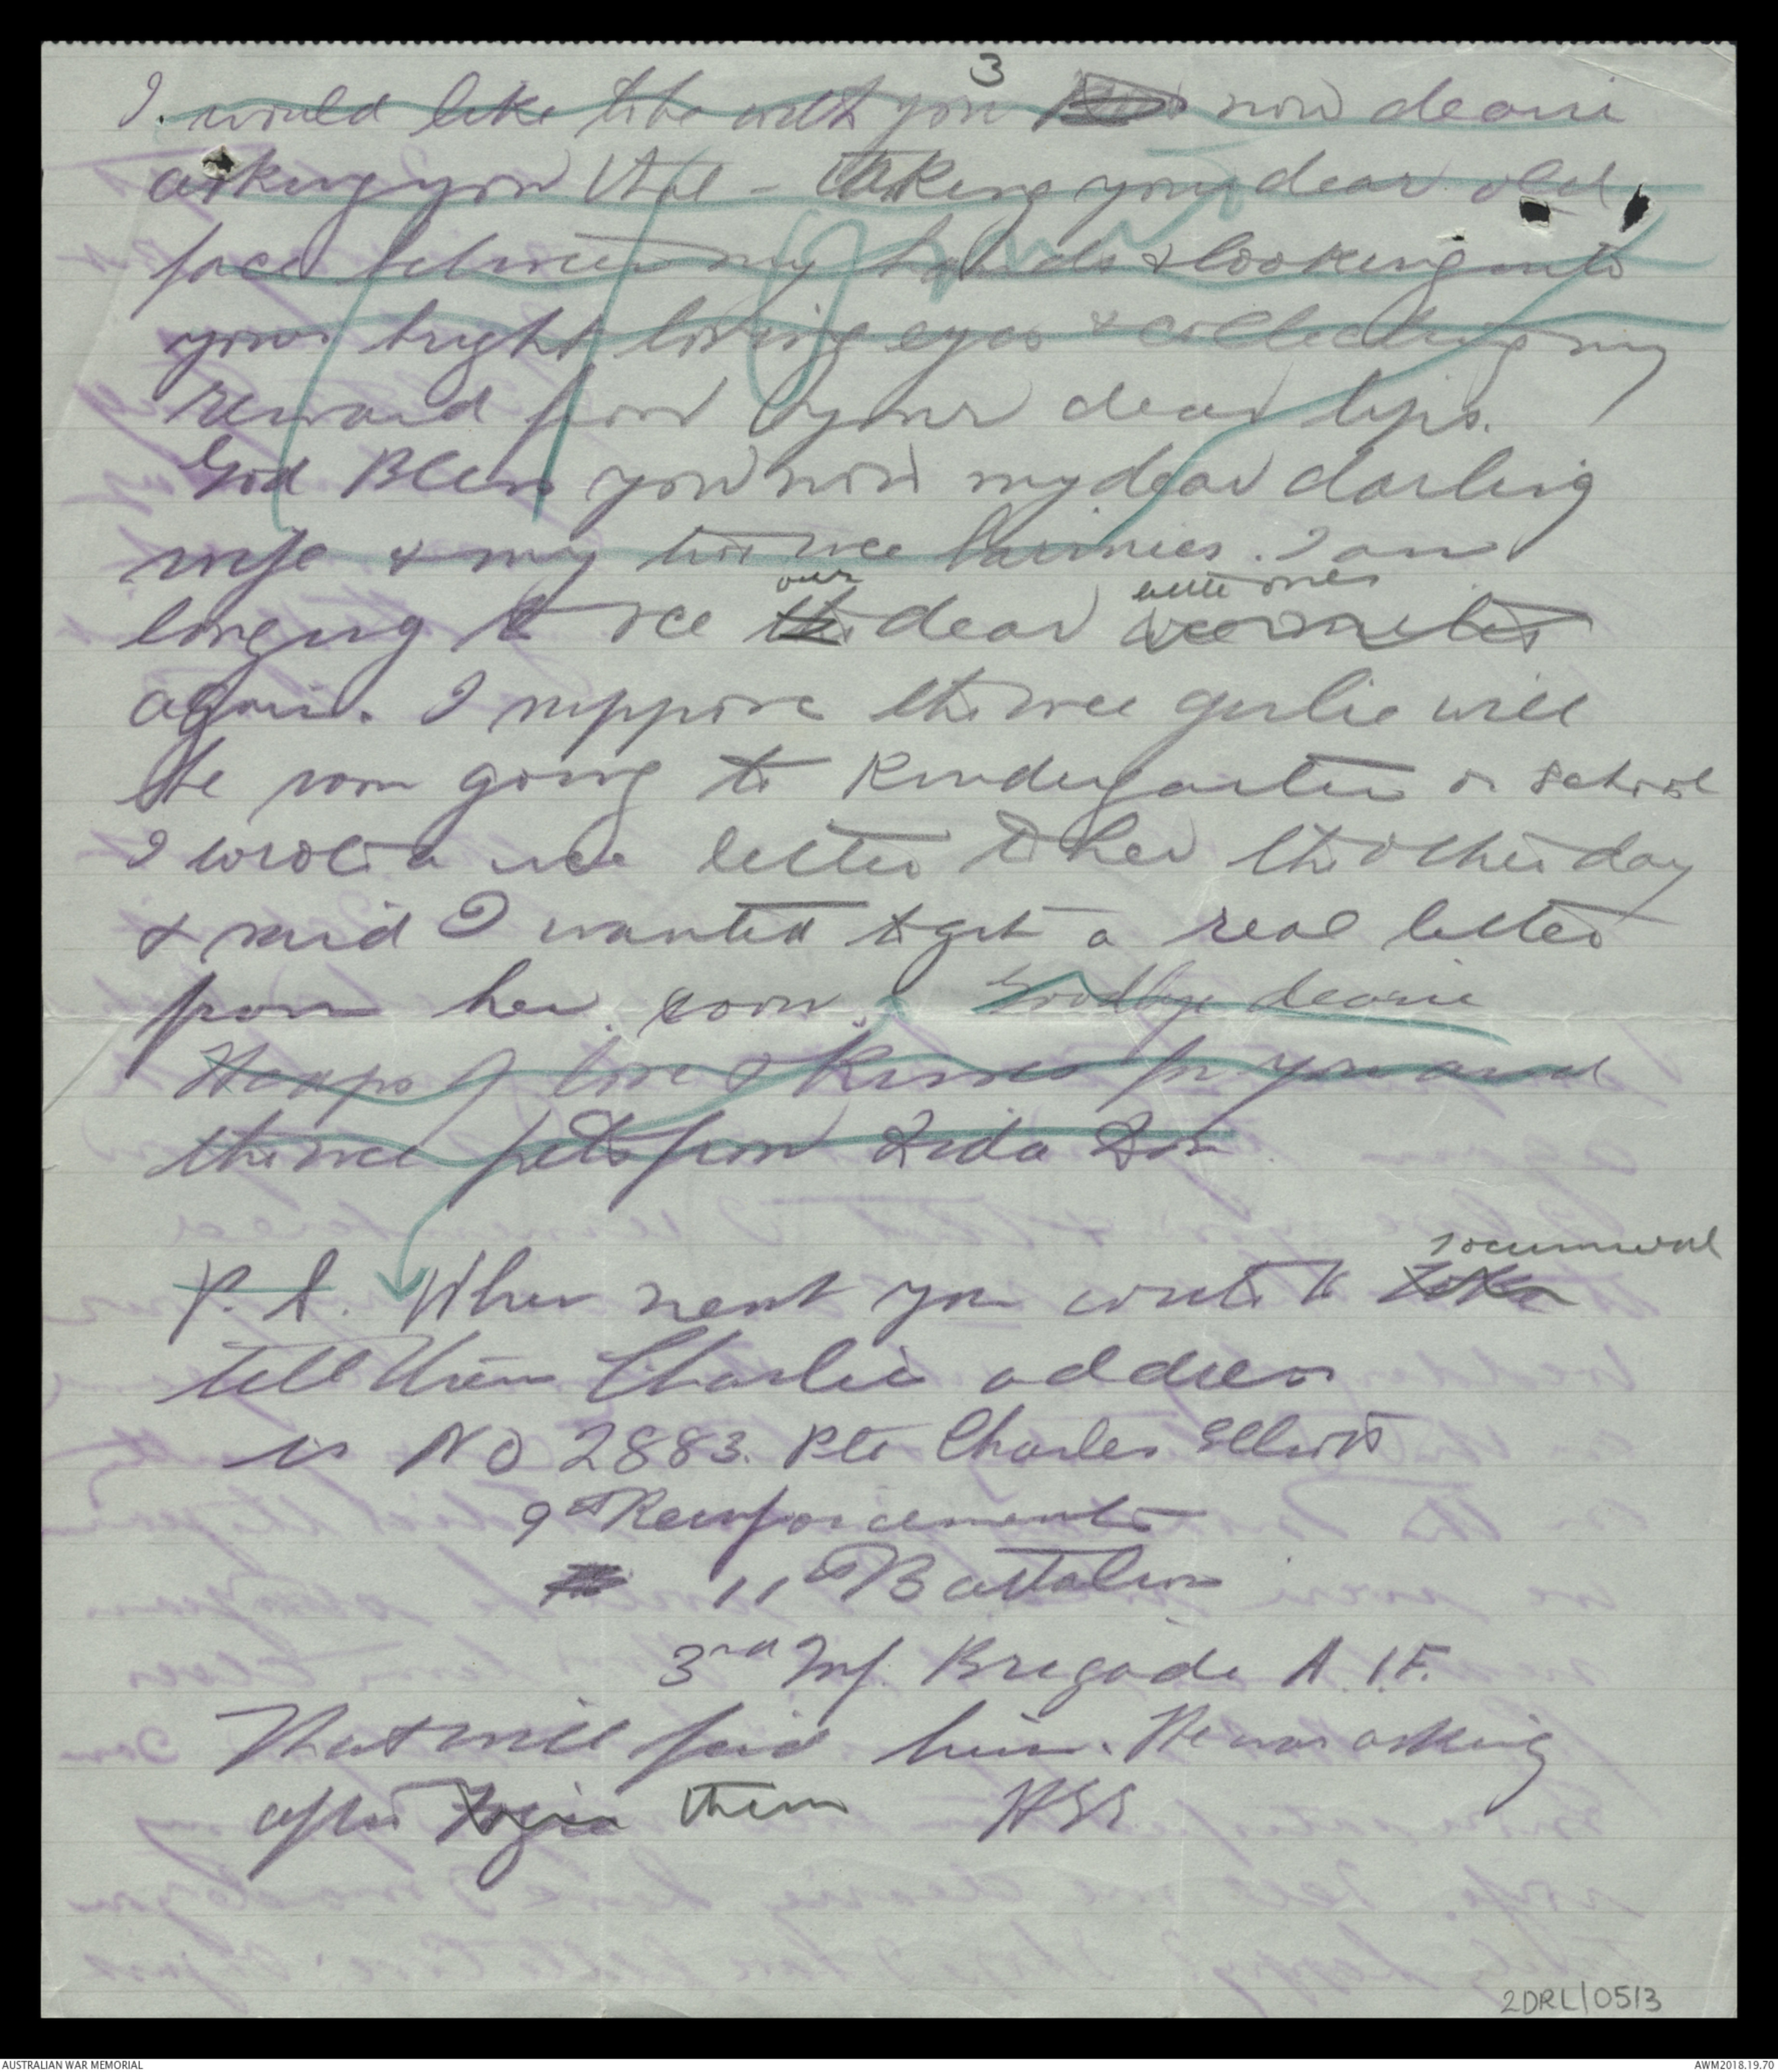 3
I would like to be with you now dearie
asking you that - taking your dear old
face between my hands & looking into
your bright loving eyes & collecting my
reward from your dear lips.
God Bless you now my dear darling
wife & my two wee bairnies. I am
our little ones
longing to see the dear wee mites
again. I suppose the wee girlie will
be soon going to Kindergarten or school
I wrote a wee letter to her the other day
& said I wanted to get a real letter
from her soon. Goodbye dearie
Heaps of love & Kisses for you and
the wee pets from Dida Don
Rocumwal
P.S. When next you write to
tell them Charlie address
is No 2883. Pte Charles Elliott
9th Reinforcements
11th Battalion
3rd Inf. Brigade A.I.F.
That will find him. He was asking
after them HEE
2DRL/0513
AUSTRALIAN WAR MEMORIAL
AWM2018.19.70